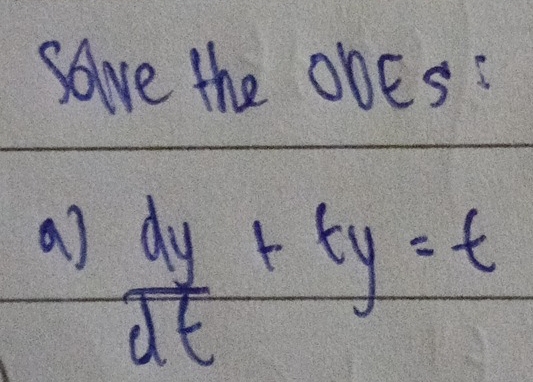 Solve the ODEs:
a) dy/dt + ty = t